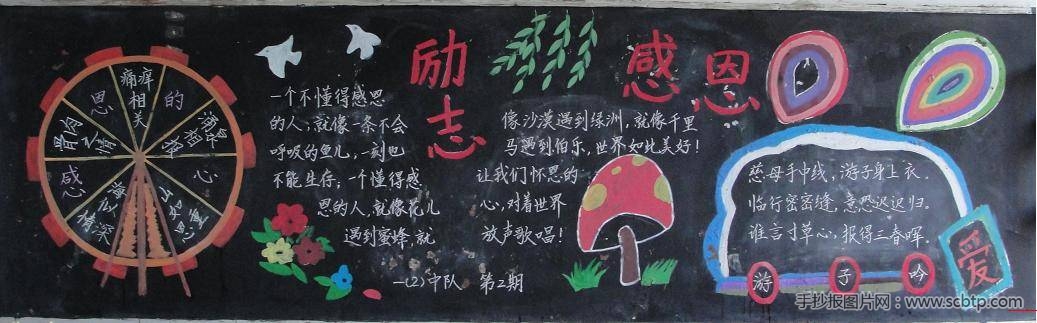 励志
感恩
感恩的心
痛痒相关
涌泉相报
恩重如山
情深似海
骨肉之情
一个不懂得感恩
的人，就像一条不会
呼吸的鱼儿，一刻也
不能生存；一个懂得感
恩的人，就像花儿
遇到蜜蜂，就
像沙漠遇到绿洲，就像千里
马遇到伯乐，世界如此美好！
让我们怀恩的
心，对着世界
放声歌唱！
一(2)中队 第2期
慈母手中线，游子身上衣。
临行密密缝，意恐迟迟归。
谁言寸草心，报得三春晖。
游子吟
爱
手抄报图片网：www.scbtp.com